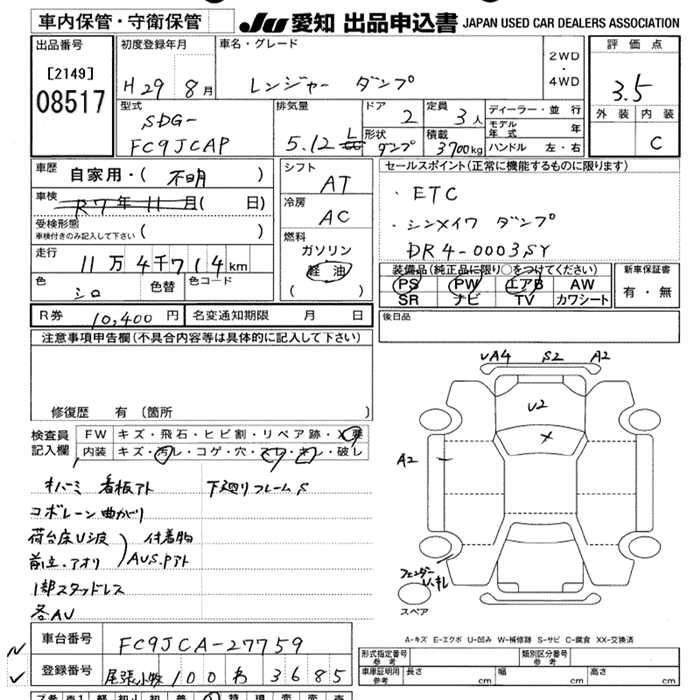 車内保管・守衛保管
JU 愛知 出品申込書 JAPAN USED CAR DEALERS ASSOCIATION
出品番号
[2149]
08517
初度登録年月
H29年 8月
車名・グレード
レンジャー ダンプ
2WD
・
4WD
評価点
3.5
外装 内装
C
型式
SDG-
FC9JCAP
排気量
5.12 L
ドア
2
定員
3人
形状
ダンプ
積載
3700kg
ディーラー・並行
モデル年式 年
ハンドル 左・右
車歴 自家用・( 不明 )
車検 R7年11月( 日)
受検形態
車検付きのみ記入して下さい ( )
走行 11万4千714km
色 シロ 色替 色コード
シフト
AT
冷房
AC
燃料
ガソリン
軽油
( )
セールスポイント(正常に機能するものに限ります)
・ETC
・シンメイワ ダンプ
DR4-0003SY
装備品(純正品に限り○をつけてください)
PS PW エアB AW
SR ナビ TV カワシート
新車保証書
有・無
R券 10,400円 名変通知期限 月 日
後日品
注意事項申告欄(不具合内容等は具体的に記入して下さい)
修復歴 有(箇所 )
検査員
記入欄
FW キズ・飛石・ヒビ割・リペア跡・X要
内装 キズ・汚レ・コゲ・穴・スレ・キレ・破レ
看板アト 下廻りフレームS
コボレーン曲がり
荷台床U波 付着物
前立.アオリ AUS.Pアト
1部スタッドレス
各AU
UA4 S2 A2
U2
X
A2
フェンダー
スペア
A-キズ E-エクボ U-凹み W-補修跡 S-サビ C-腐食 XX-交換済
車台番号 FC9JCA-27759
登録番号 尾張小牧 100 わ 3685
形式指定番号
参考
類別区分番号
参考
車庫証明用
参考
長さ cm
幅 cm
高さ cm